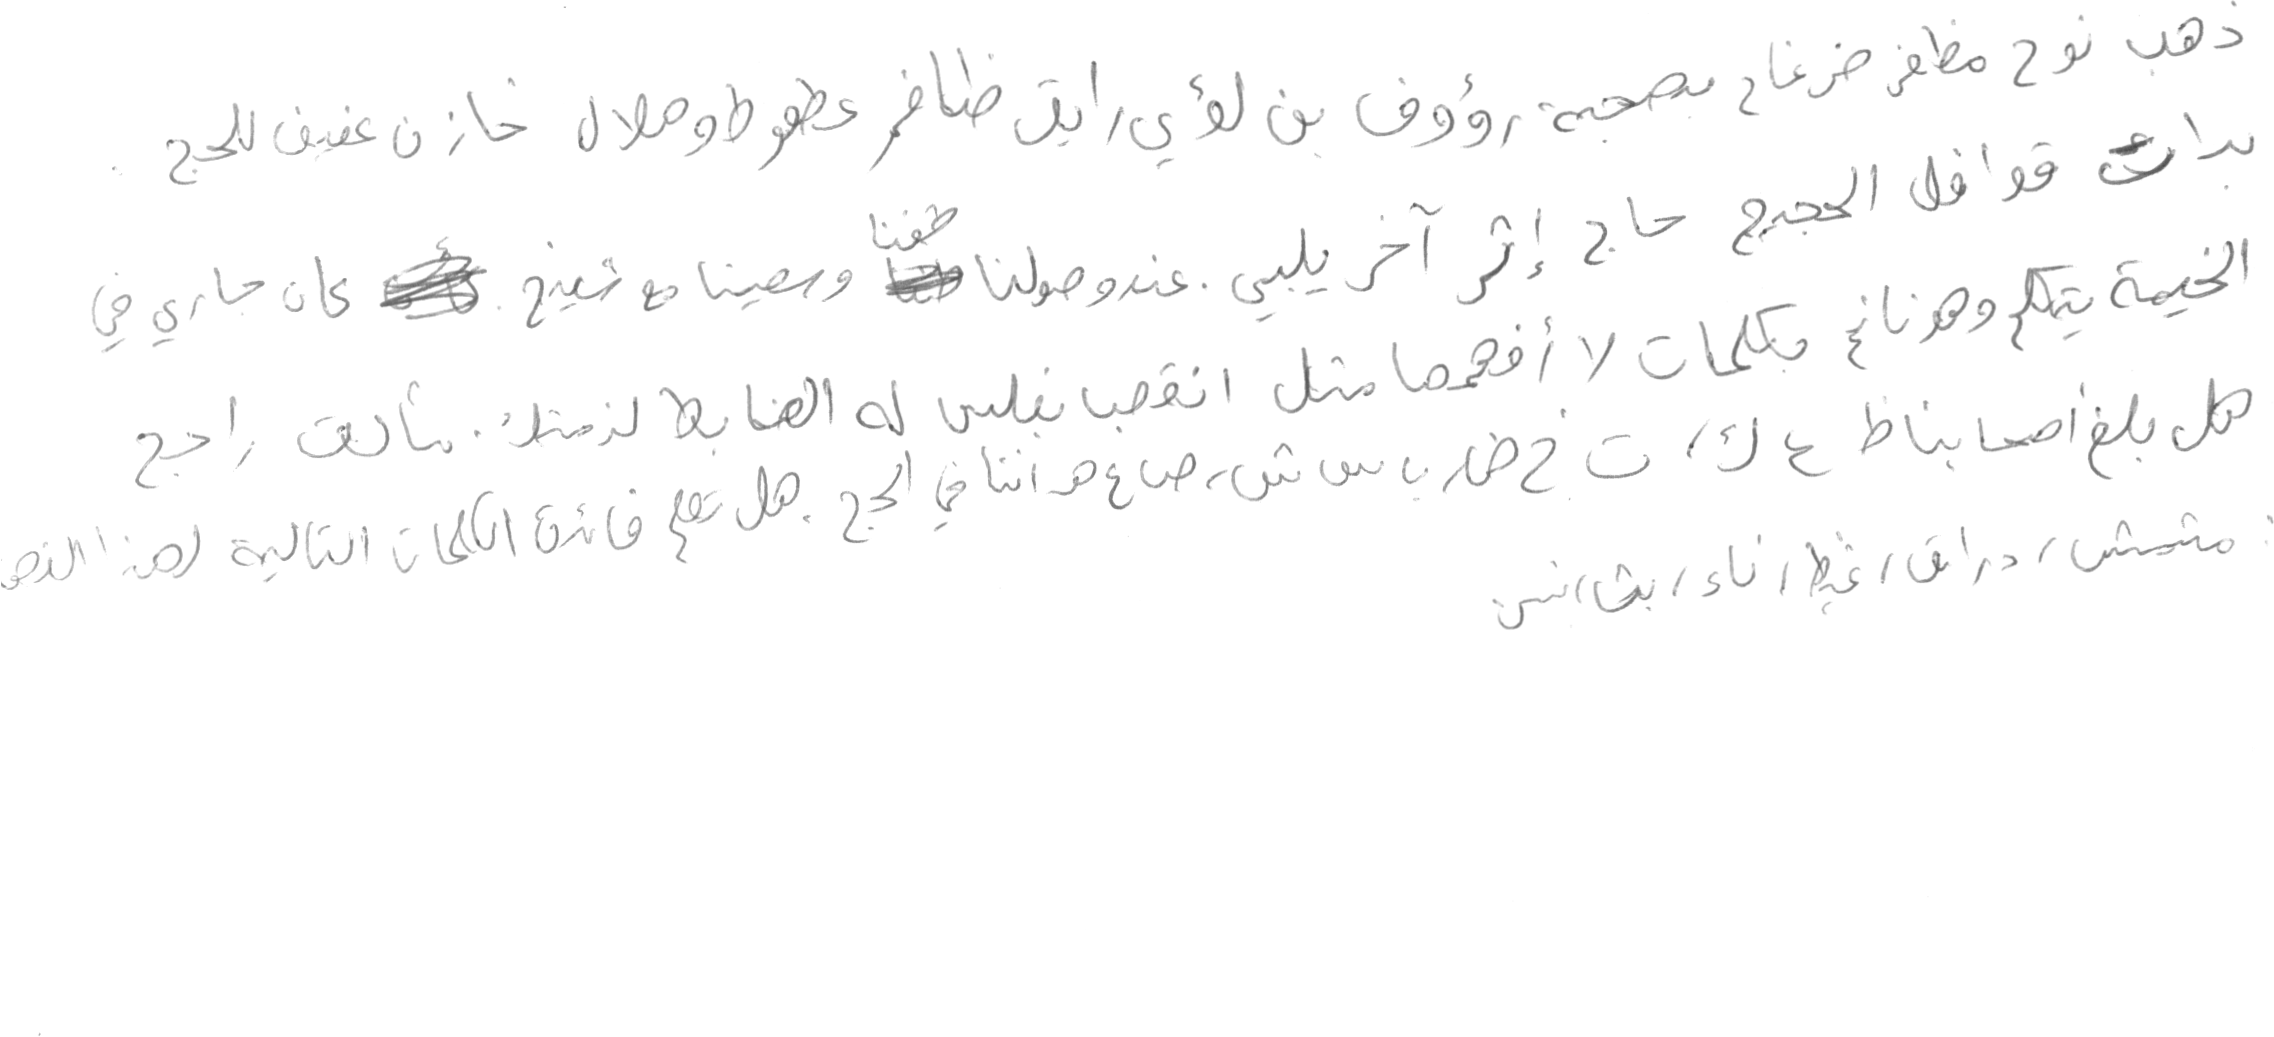 ذهب نوح مظفر ضرغام بصحبة رؤوف بن لؤي رايق ظافر عطعوط وهلال خازن عفيف للحج .
بدات قوافل الحجيج حاج إثر آخر يلبي . عند وصولنا طفنا وسعينا مع شيخ . كان جاري في
الخيمة يتكلم وهو نائم بكلمات لا أفهمها مثل انقصبا بفلس له الضابط لذمتك . سألت راجح
هل بلغ أصحابنا ظ ع ك ، ت خ ض ر ب س ش ، ص اع هـ اننا في الحج . هل تعلم فائدة الكلمات التالية لهذا النص
: مشمش ، دراق ، غيظ ، ناء ، بث ، نس